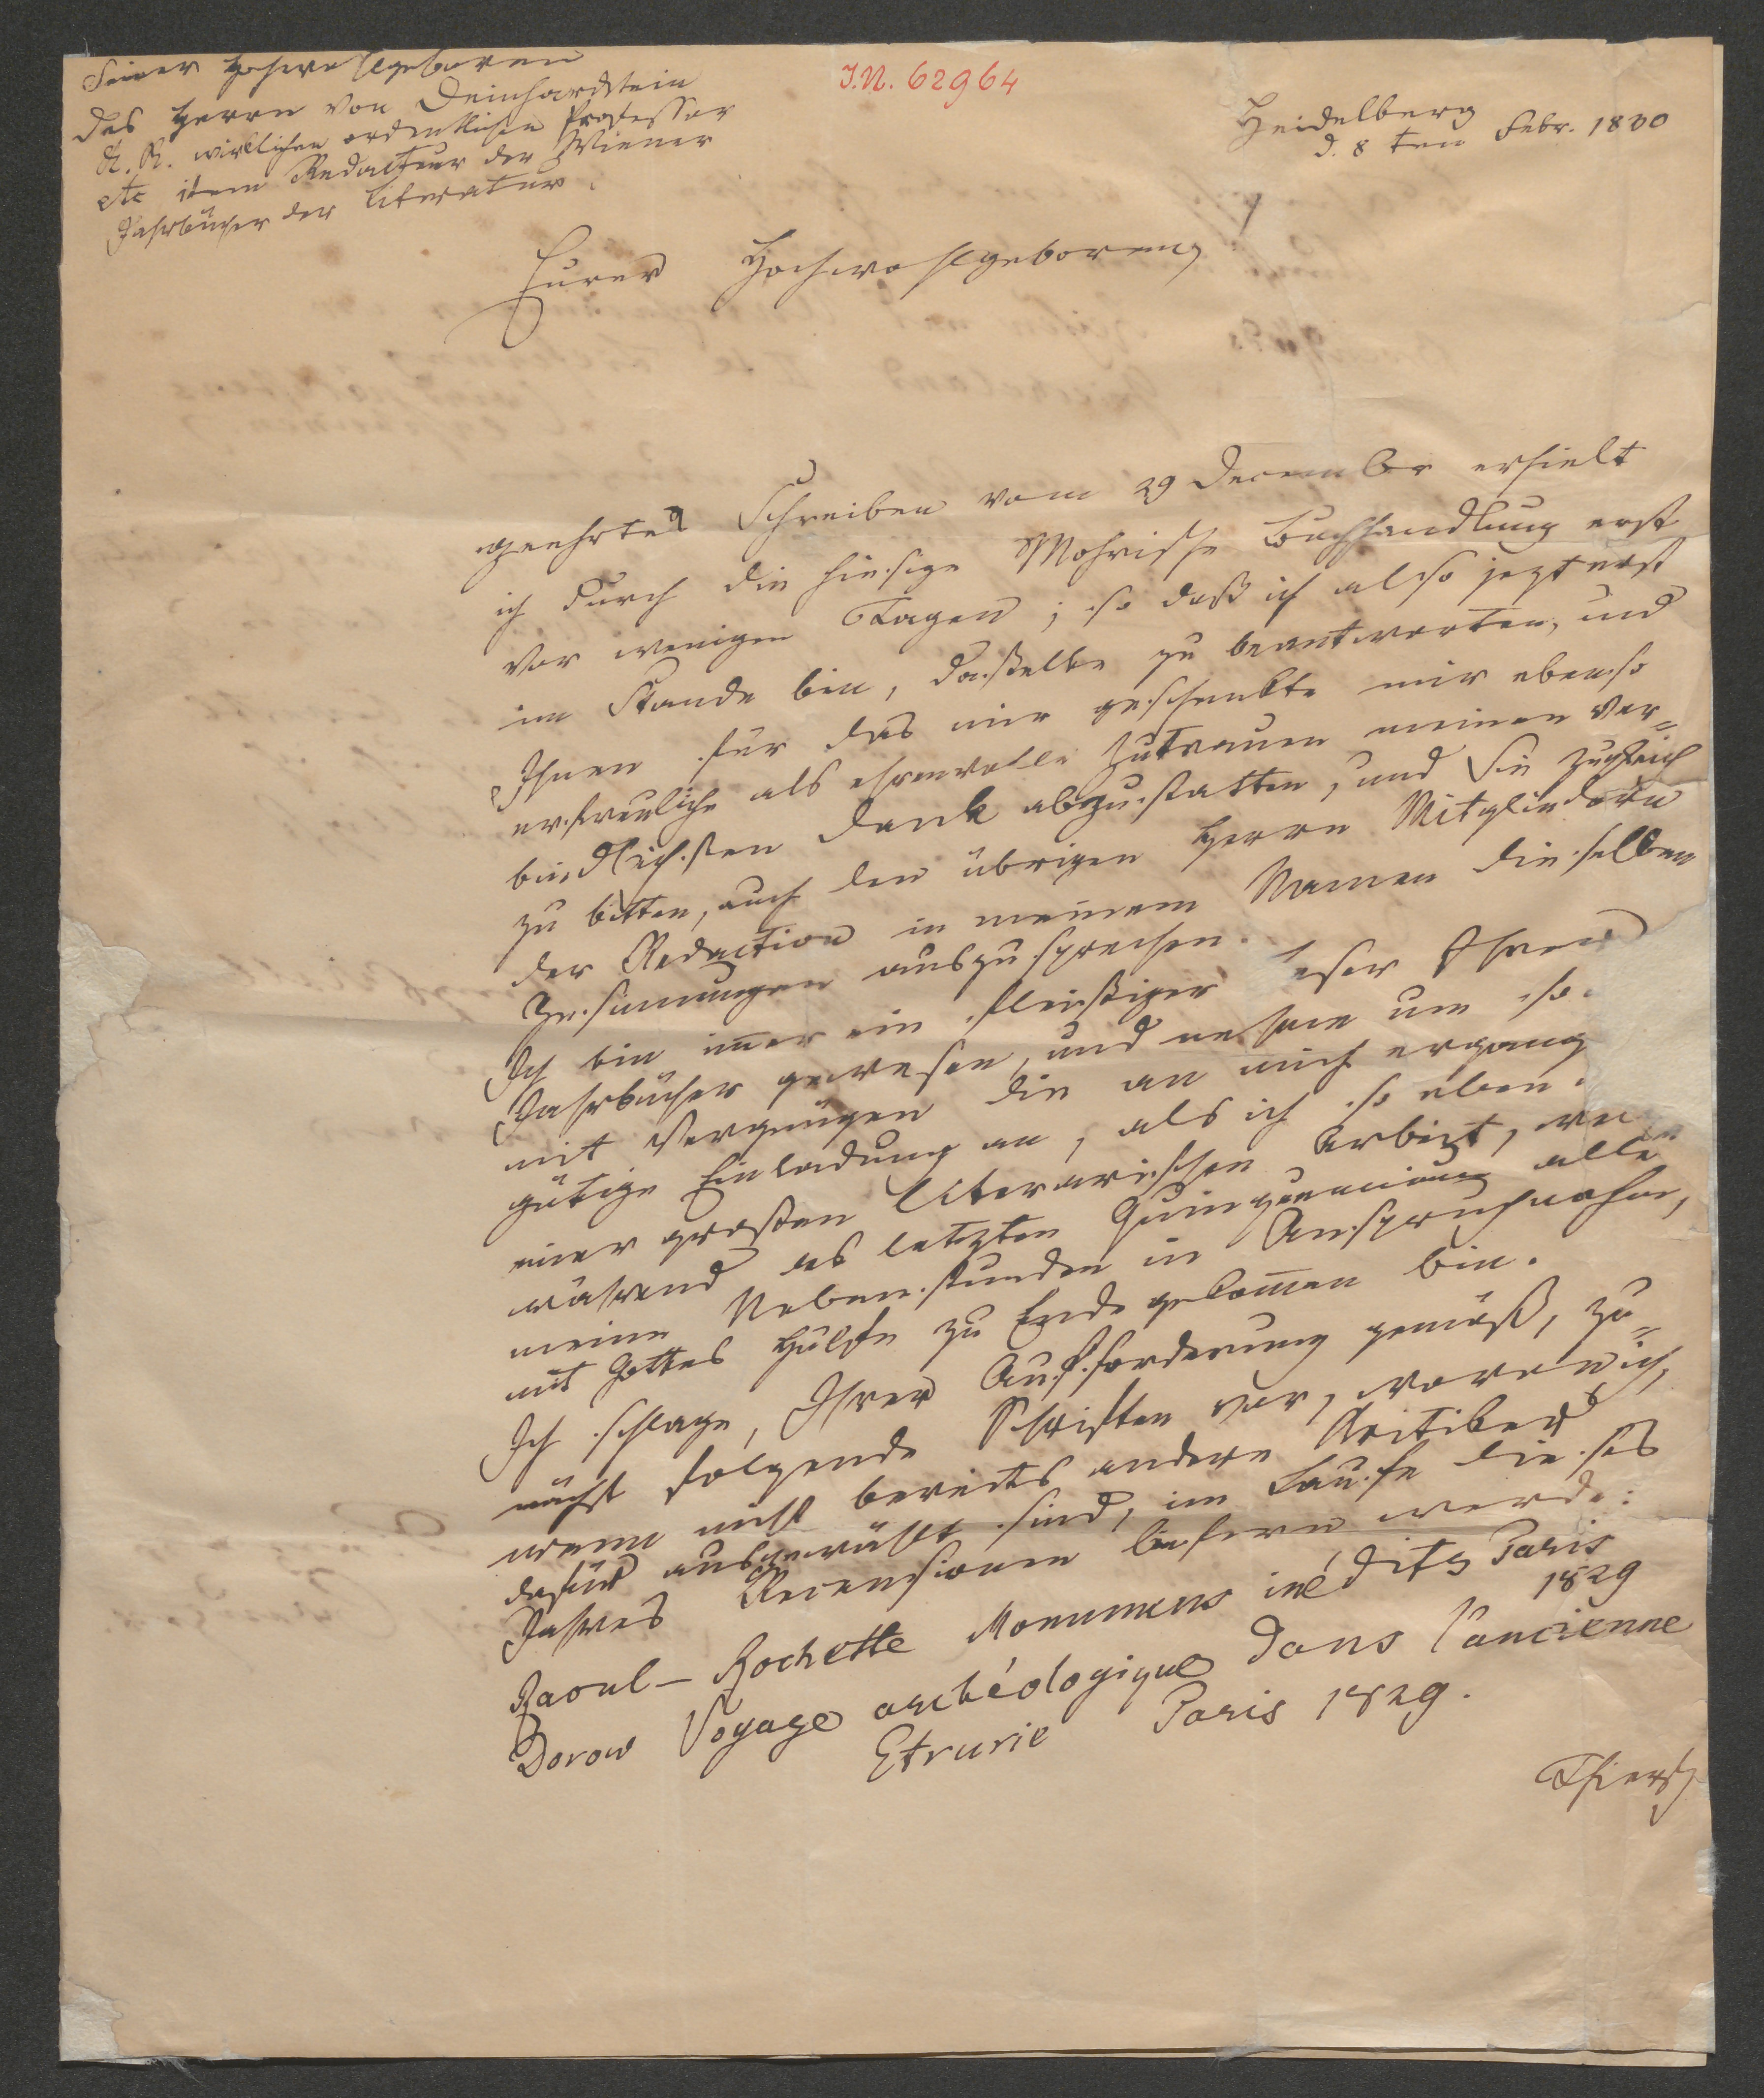 Seiner Hochwohlgeboren
des Herrn von Deinhardstein
K. K. wirklichen ordentlichen Professor
etc item Redacteur der Wiener
Jahrbücher der Literatur.
J.N. 62964
Heidelberg
d. 8 ten Febr. 1830
Eurer Hochwohlgeboren
geehrtes Schreiben vom 29 December erhielt
ich durch die hiesige Mohrische Buchhandlung erst
vor wenigen Tagen; so daß ich also jezt erst
im Stande bin, dasselbe zu beantworten, und
Ihnen für das mir geschenkte mir ebenso
erfreuliche als ehrenvolle Zutrauen meinen ver=
bindlichsten Dank abzustatten, und Sie zugleich
zu bitten, auch den übrigen Herrn Mitgliedern
der Redaction in meinem Namen dieselben
Gesinnungen auszusprechen.
Ich bin im̄er ein fleißiger Leser Ihrer
Jahrbücher gewesen, und nehme um so
mit Vergnügen die an mich ergang
gütige Einladung an, als ich so eben
einer großen literarischen Arbeit, we
während des letzten Quinquennium alle
meine Nebenstunden in Anspruch nahm,
mit Gottes Hülfe zu Ende gekom̄en bin.
Ich schlage, Ihrer Aufforderung gemäß, zu=
nächst folgende Schriften vor, wovon ich,
wenn nicht bereits andere Kritiker
dafür ausgewählt sind, im Laufe dieses
Jahres Recensionen liefern werde:
Raoul-Rochette Monumens inédits Paris
1829
Dorow Voyage archéologique dans l'ancienne
Etrurie Paris 1829.
Thiersch